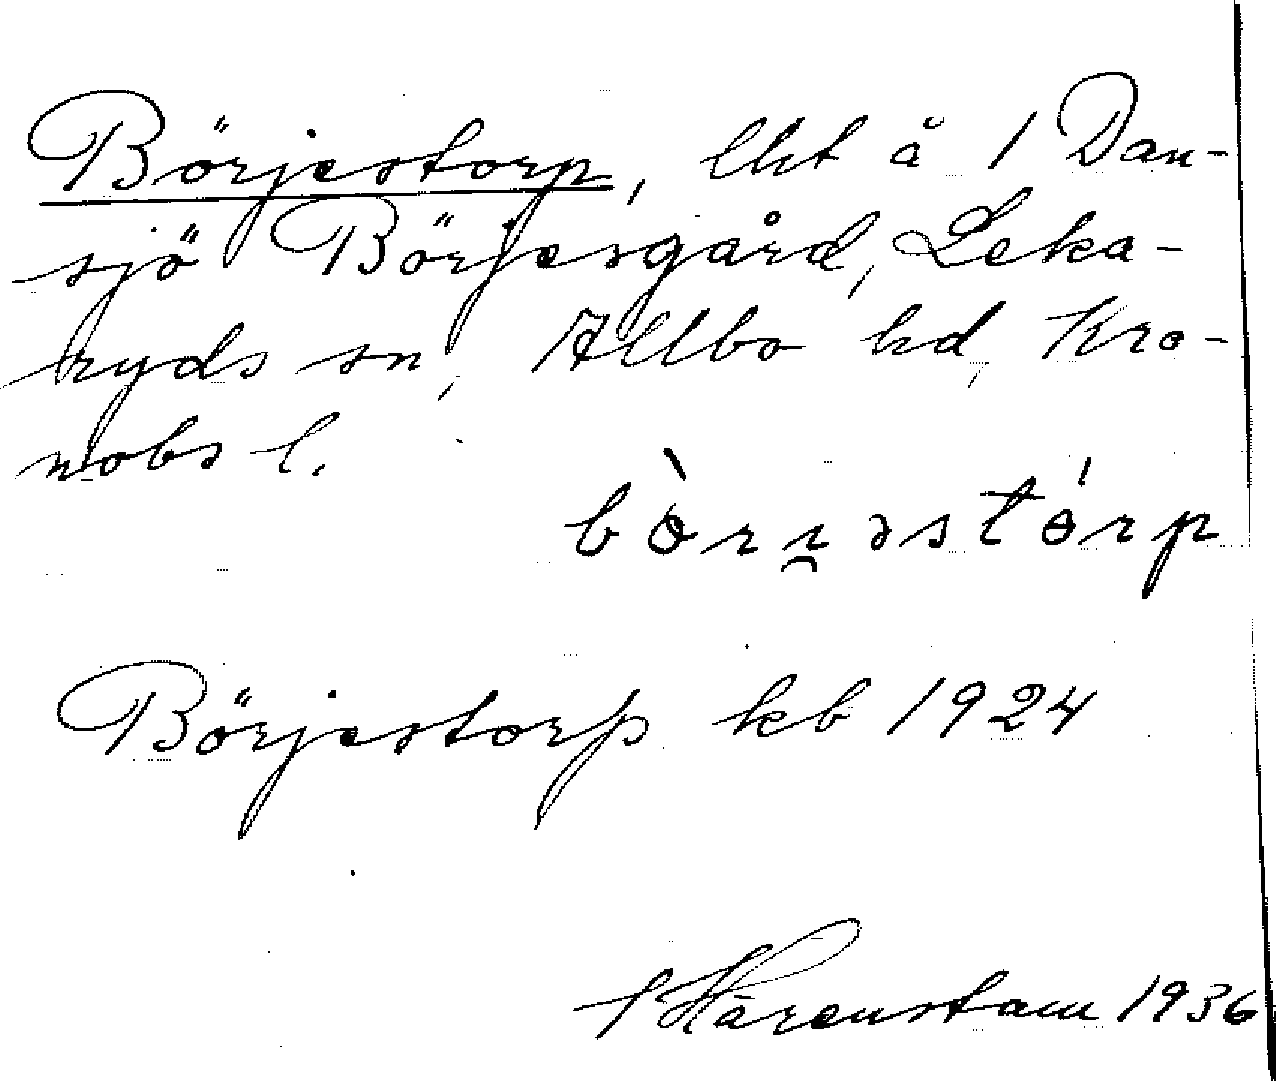 Börjestorp, lht å 1 Dan-
sjö Börjesgård, Leka-
ryds sn, Allbo hd, Kro-
nobs l.
bòrı̯əstórp
Börjestorp kb 1924
Härenstam 1936